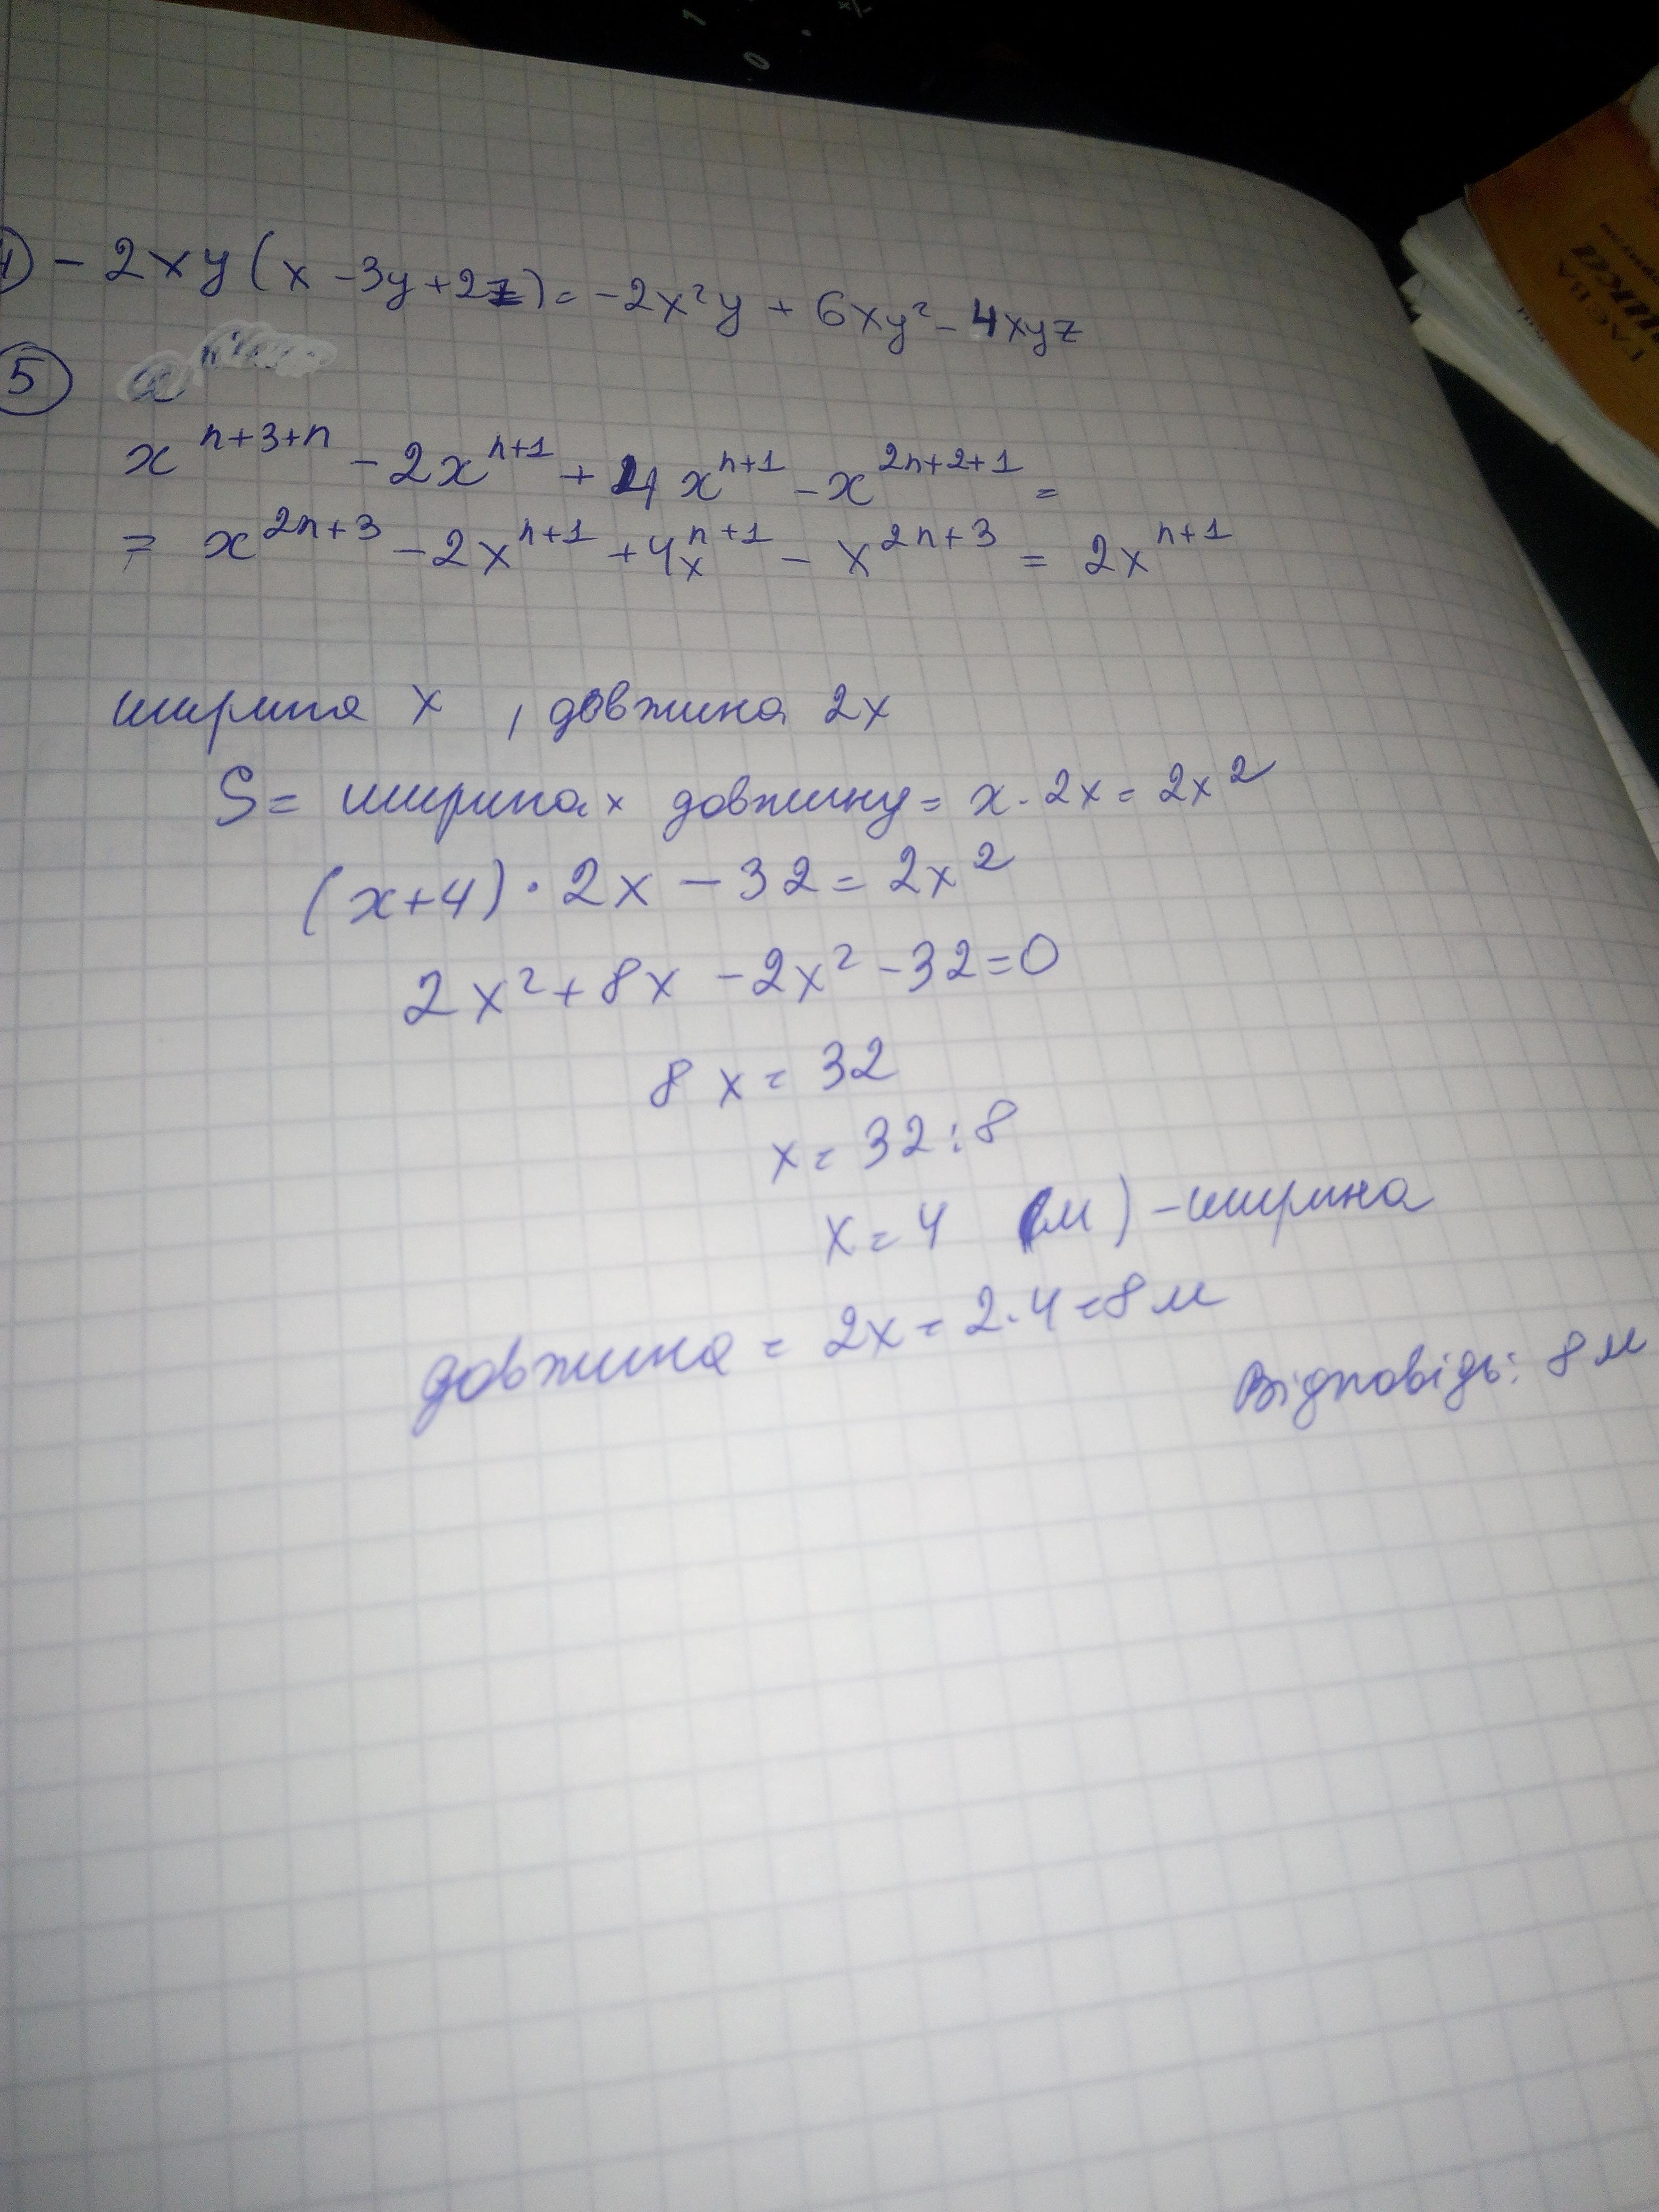 - 2xy(x - 3y + 2z) = -2x²y + 6xy² - 4xyz
5
x^{n+3+n} - 2x^{n+1} + 4x^{n+1} - x^{2n+2+1} =
= x^{2n+3} - 2x^{n+1} + 4x^{n+1} - x^{2n+3} = 2x^{n+1}
ширина x , довжина 2x
S = ширина × довжину = x · 2x = 2x²
(x+4) · 2x - 32 = 2x²
2x² + 8x - 2x² - 32 = 0
8x = 32
x = 32 : 8
x = 4 (м) - ширина
довжина = 2x = 2 · 4 = 8 м
Відповідь: 8 м